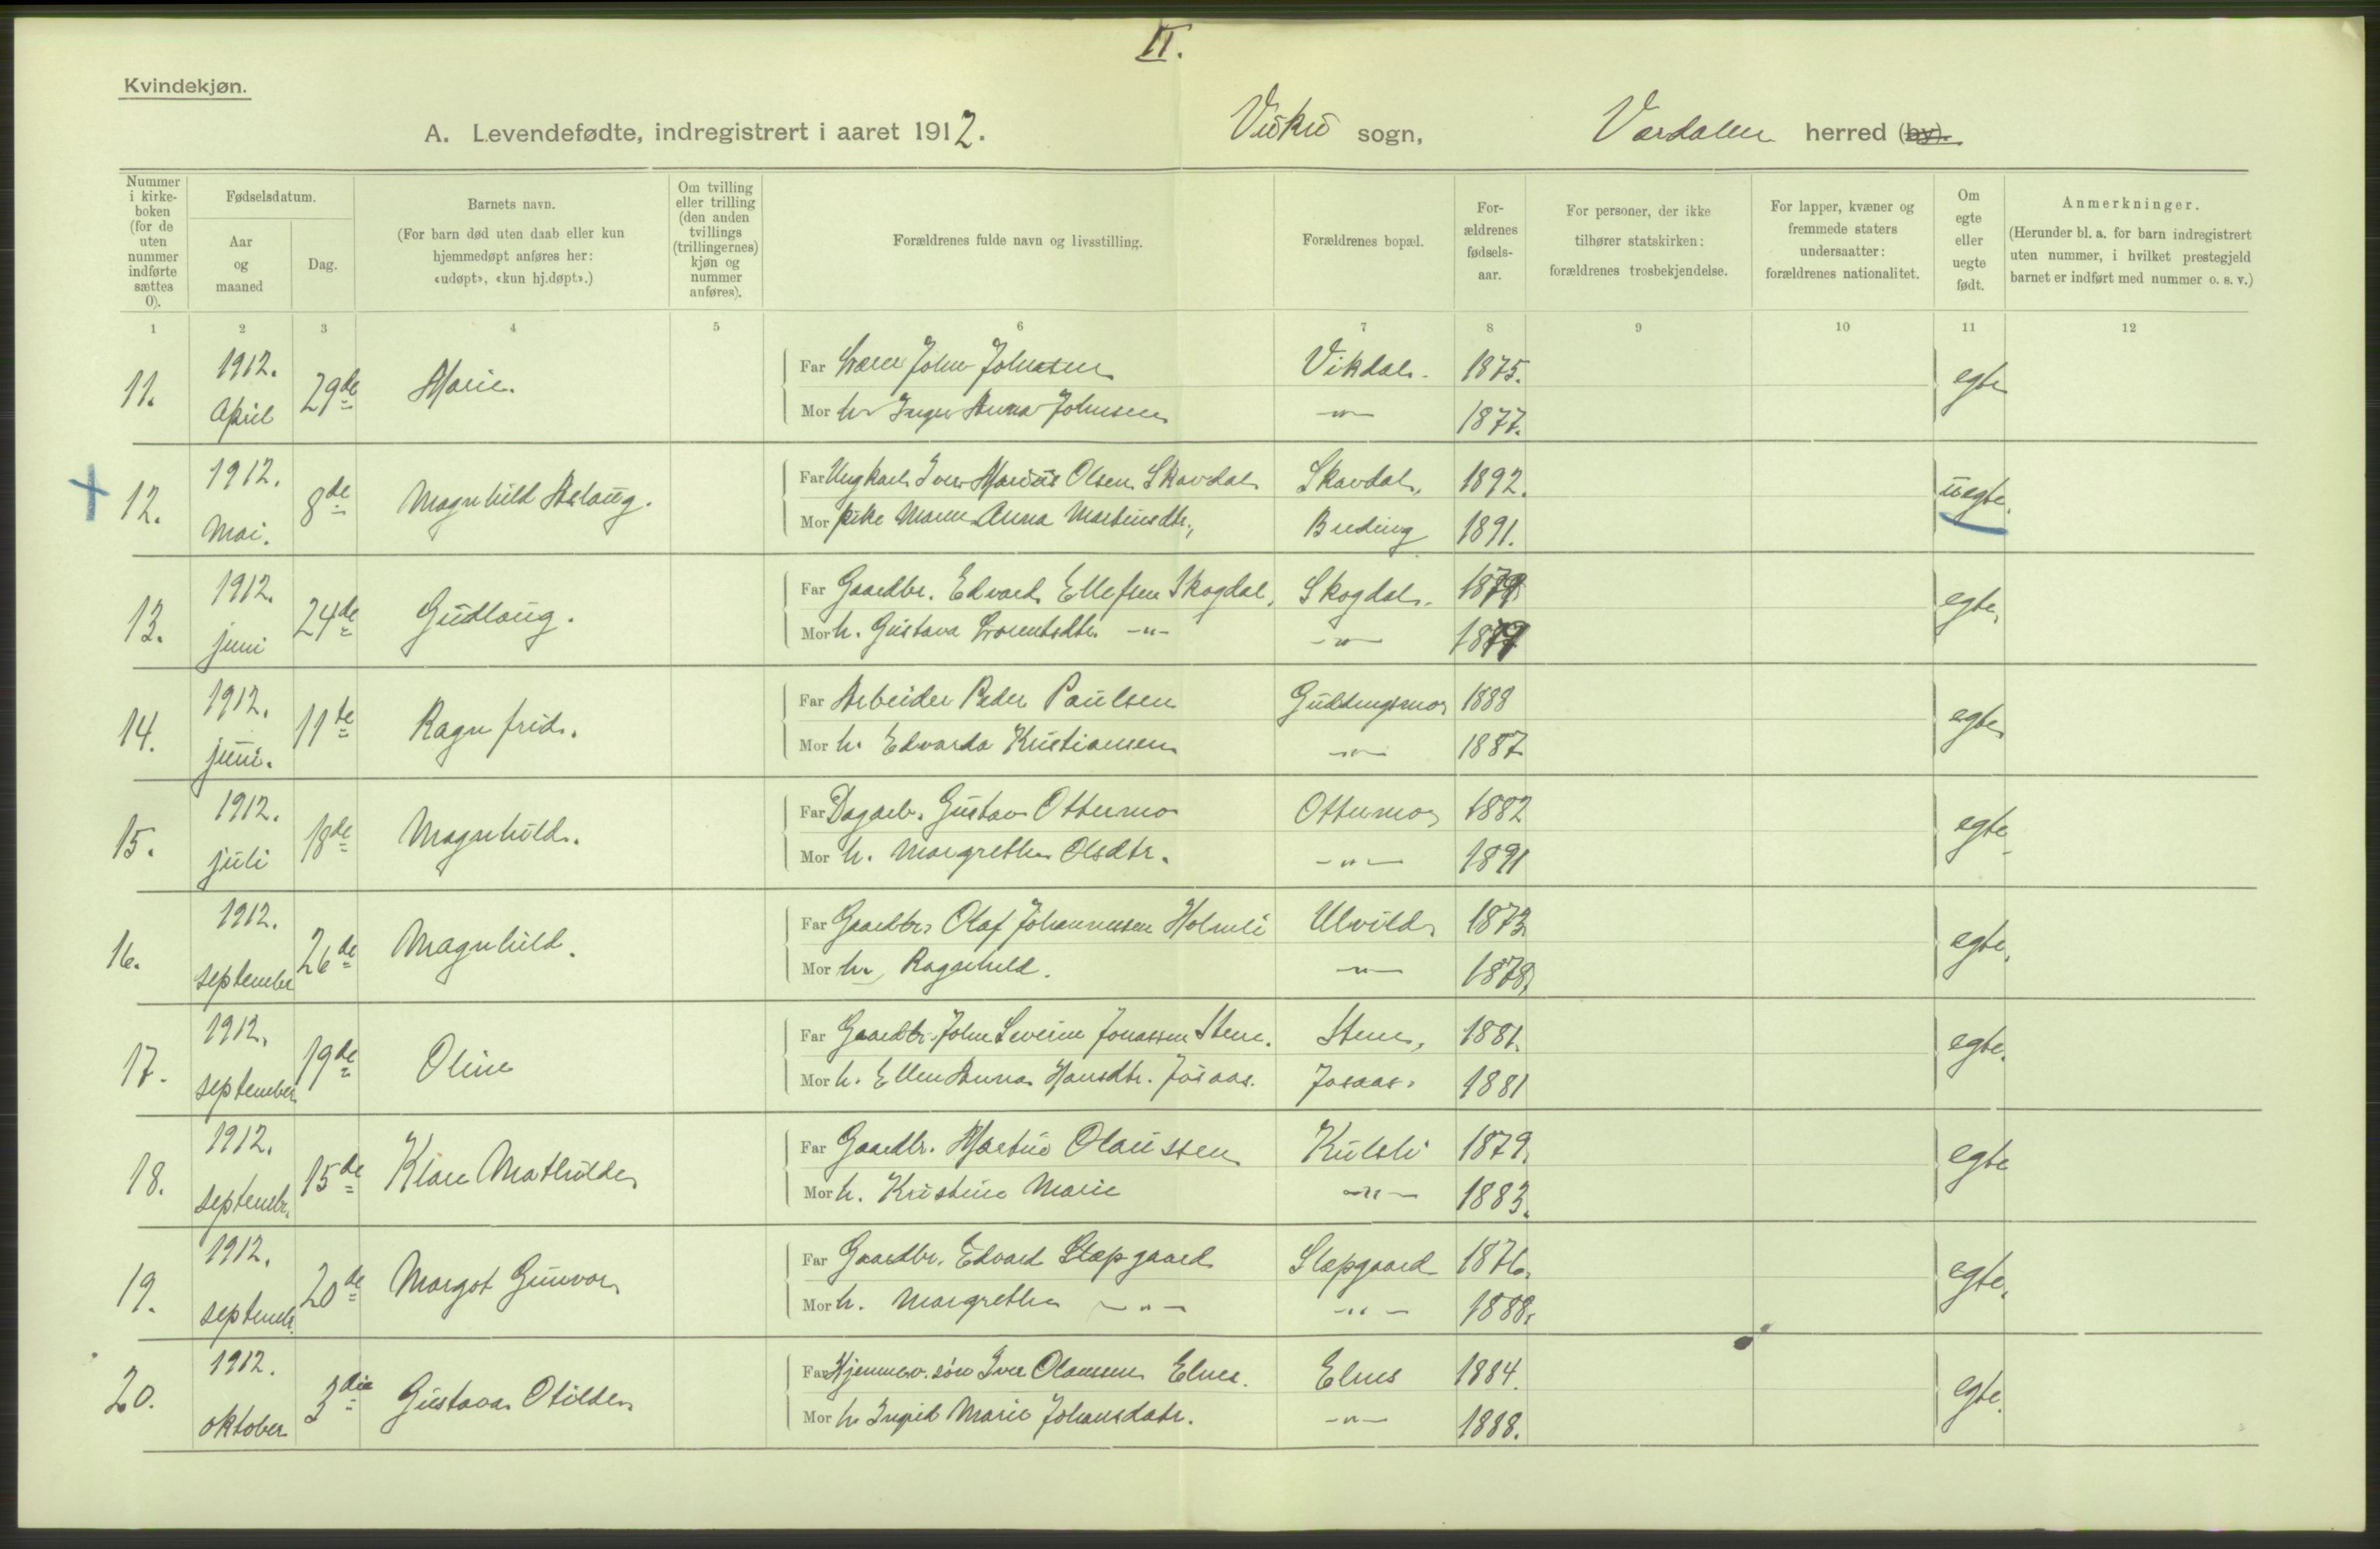 II.
Kvindekjøn.
A. Levendefødte, indregistrert i aaret 1912. Vuku sogn, Værdalen herred (by).
Nummer i kirke-boken (for de uten nummer indførte sættes 0).
Fødselsdatum.
Aar og maaned
Dag.
Barnets navn.
(For barn død uten daab eller kun hjemmedøpt anføres her: «udøpt», «kun hj.døpt».)
Om tvilling eller trilling (den anden tvillings (trillingernes) kjøn og nummer anføres).
Forældrenes fulde navn og livsstilling.
Forældrenes bopæl.
For-ældrenes fødsels-aar.
For personer, der ikke tilhører statskirken: forældrenes trosbekjendelse.
For lapper, kvæner og fremmede staters undersaatter: forældrenes nationalitet.
Om egte eller uegte født.
Anmerkninger.
(Herunder bl. a. for barn indregistrert uten nummer, i hvilket prestegjeld barnet er indført med nummer o. s. v.)
1 2 3 4 5 6 7 8 9 10 11 12
11. 1912. April 29de Marie. egte
Far John Johnsen Vikdal. 1875.
Mor h. Inger Anna Johnsen -"- 1877.
12. 1912. Mai. 8de Magnhild Aslaug. uegte.
Far Ungkarl Iver Marius Olsen Skavdal Skavdal, 1892.
Mor pike Maren Anna Martinsdtr., Breding 1891.
13. 1912. juni 24de Gudlaug. egte,
Far Gaardbr. Edvard Ellefsen Skogdal, Skogdal.
Mor h. Gustava Lorentsdtr. -"- -"-
14. 1912. juni. 11te Ragnfrid. egte
Far Arbeider Peder Paulsen Guddingsmo, 1888
Mor h. Edvarda Kristiansen -"- 1887
15. 1912. juli 18de Magnhild. egte
Far Dagarb. Gustav Ottermo Ottermo, 1882
Mor h. Margrethe Olsdtr. -"- 1891
16. 1912. september 26de Magnhild. egte,
Far Gaardbr. Olaf Johannesen Holmli Ulvild, 1873
Mor h. Ragnhild. -"- 1878,
17. 1912. september 19de Oline egte.
Far Gaardbr. John Severin Jonassen Stene. Stene, 1881.
Mor h. Ellen Anna Hansdtr. Jøsaas. Jøsaas. 1881
18. 1912. septembr. 15de Klare Mathilde, egte
Far Gaardbr. Martin Olaussen Kulsli 1879.
Mor h. Kristine Marie -"- 1883.
19. 1912. septembr. 20de Margot Gunvor, egte,
Far Gaardbr. Edvard Slapgaard Slapgaard 1876,
Mor h. Margrethe -"- -"- 1888.
20. 1912. oktober 3die Gustava Otilde, egte.
Far Hjemmev. søn Iver Olaussen Elnes. Elnes 1884.
Mor h. Ingrid Marie Johansdatr. -"- 1888.